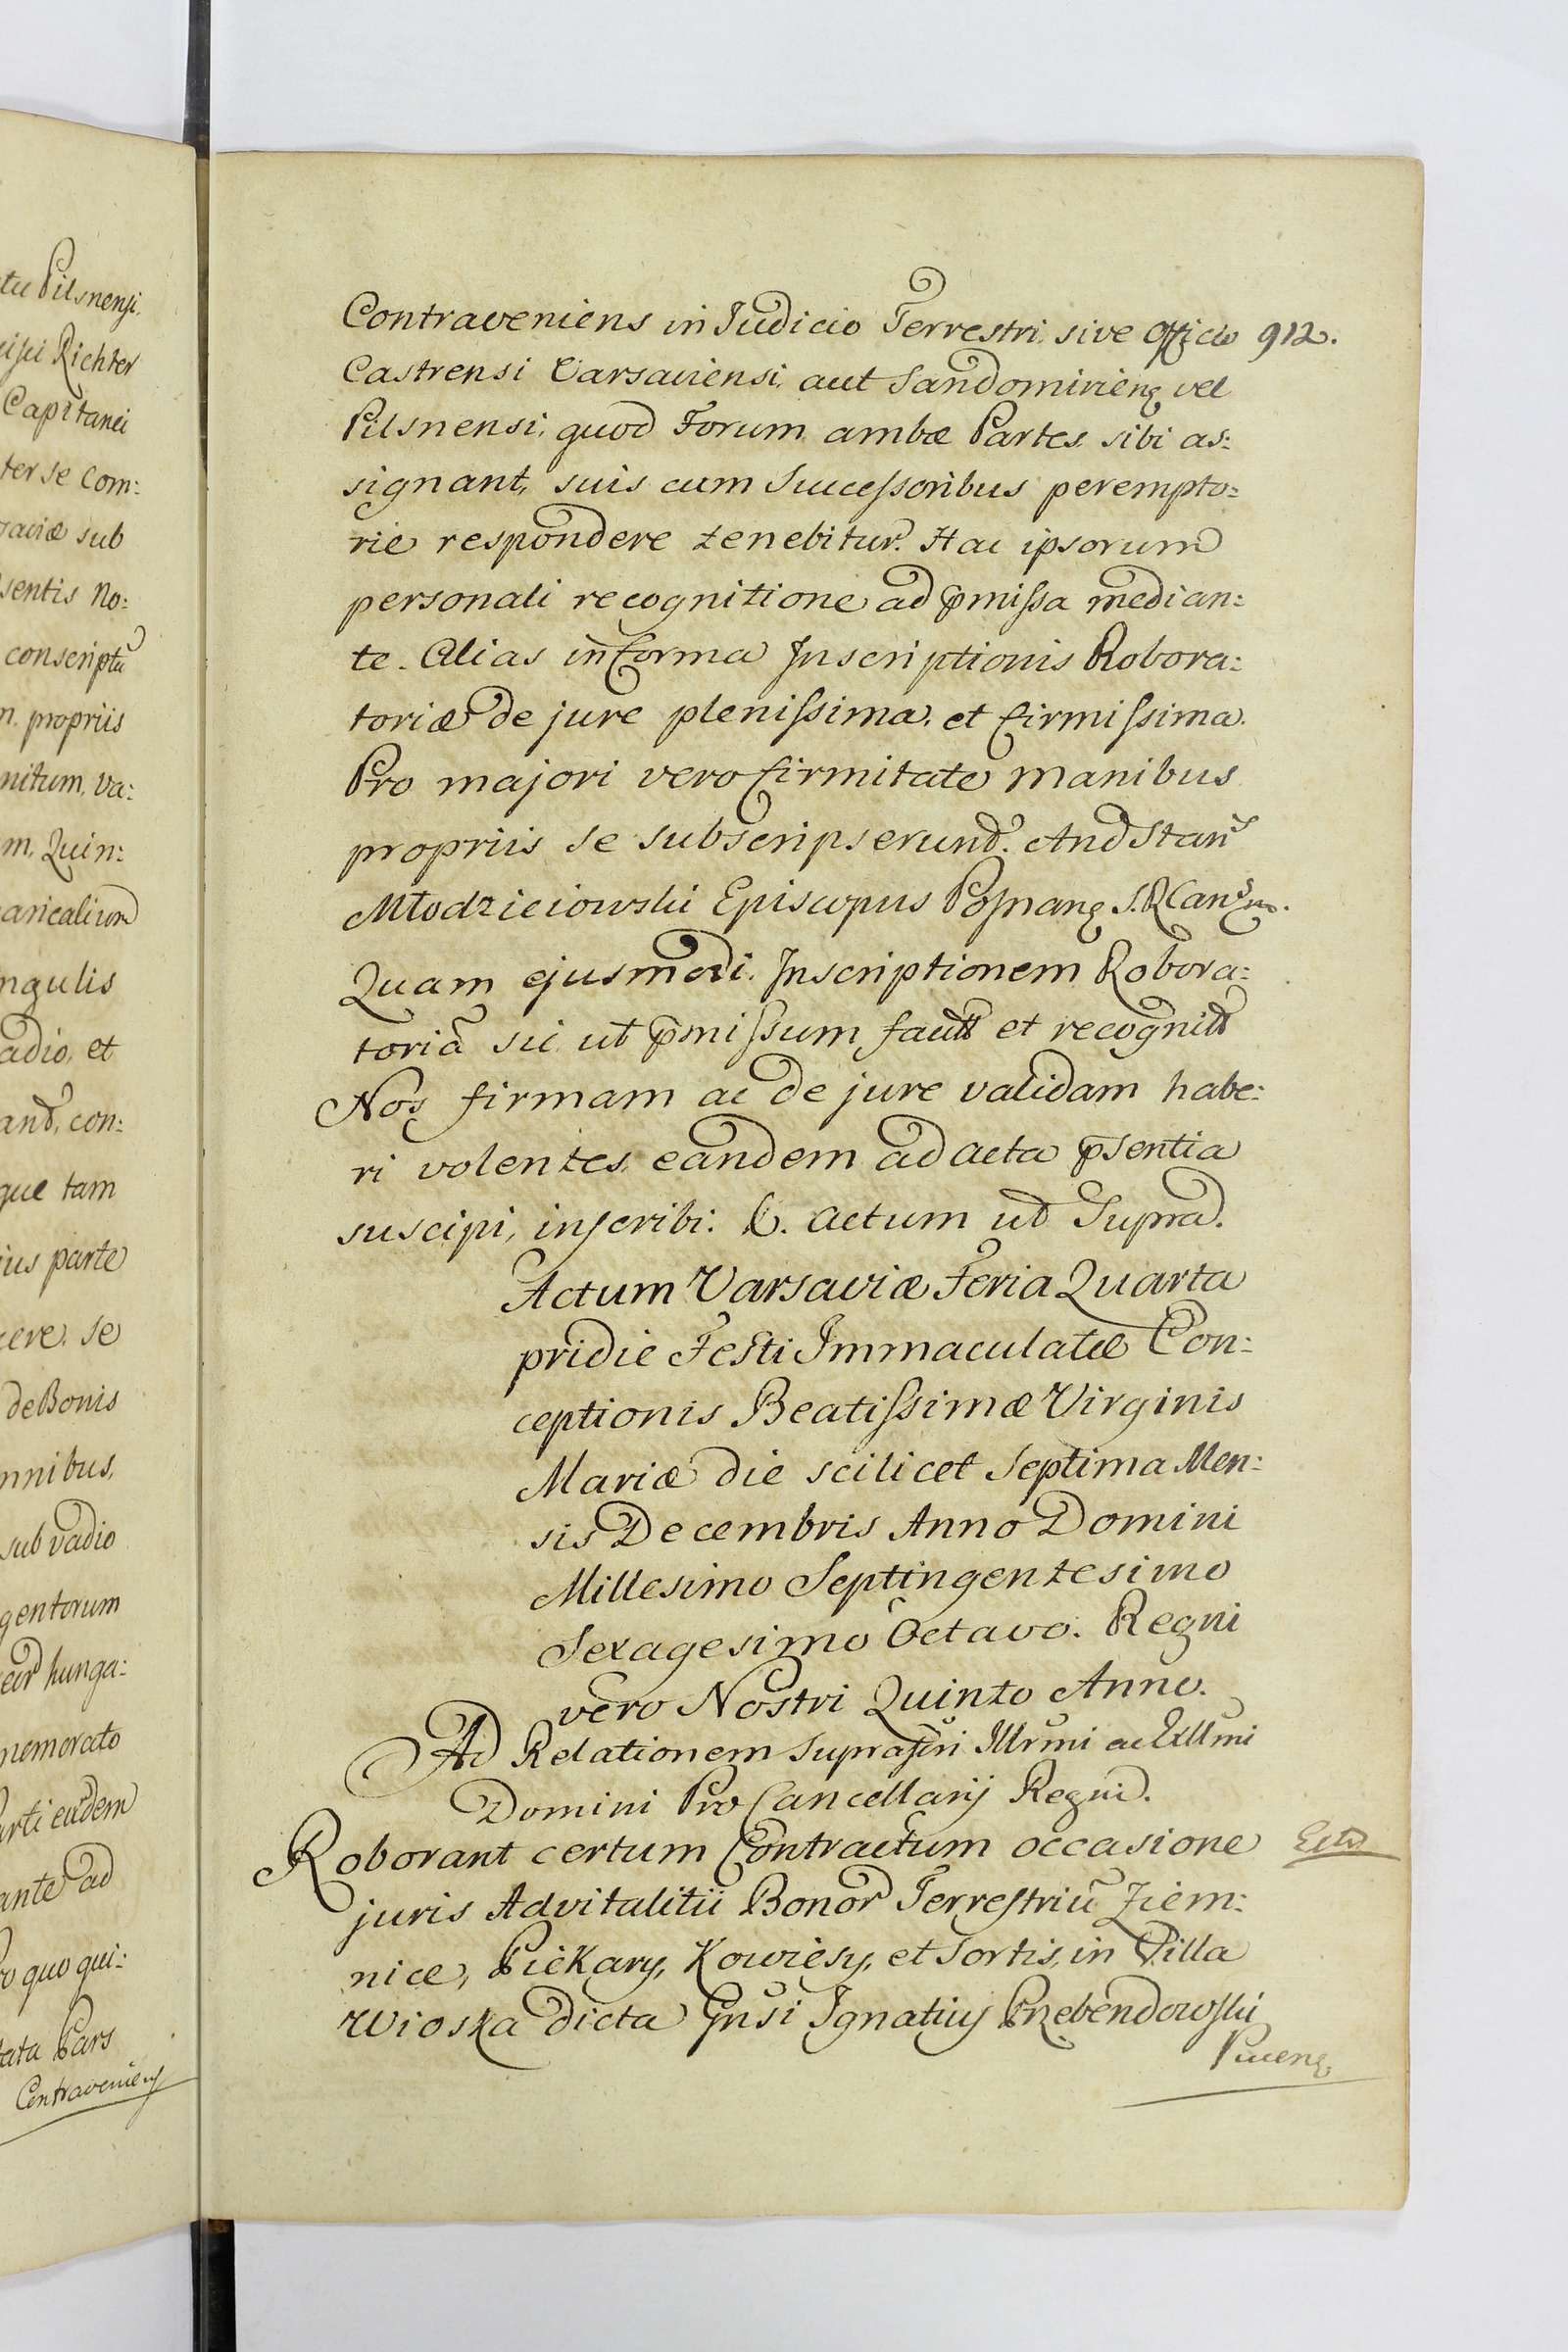 tu Pilsnensi.
Richter
Capitanei
ter se Com:
raviæ sub
sentis No:
conscriptū
n. propriis
nitum, va:
m, Quin:
aricalium
ngulis
adio, et
and, con:
que tam
ius parte
ere. se
de Bonis
mnibus,
sub vadio
gentorum
hunga:
nemorato
arti eidem
ante ad
o quo qui:
tata Pars
Contraveniens
Contraveniens in Judicio Terrestri sive Officio 912.
Castrensi Varsaviensi, aut Sandomiriens vel
Pilsnensi, quod Forum ambæ Partes sibi as:
signant, suis cum Successoribus perempto:
rie respondere tenebitur. Hac ipsorum
personali recognitione ad p̄missa median:
te. Alias in forma Inscriptionis Robora:
toriæ de jure plenissima, et firmissima.
Pro majori vero firmitate manibus
propriis se subscripserunt. And Stan
Młodzieiowski Episcopus Posnan S.R
Quam ejusmodi Inscriptionem Robora:
toriā sic ut p̄missum et
Nos firmam ac de jure validam habe:
ri volentes eandem ad acta p̄sentia
suscipi, inscribi. &. Actum ut Supra.
Actum Varsaviæ Feria Quarta
pridie Festi Immaculatæ Con:
ceptionis Beatissimæ Virginis
Mariæ die scilicet Septima Men:
sis Decembris Anno Domini
Millesimo Septingentesimo
Sexagesimo Octavo. Regni
vero Nostri Quinto Anno.
Ad Relationem Suprascri Illrmi ac Exllmi
Domini Pro Cancellarij Regni.
Roborant certum Contractum occasione
juris Advitalitii Bonor Terrestriū Ziem:
nice, Piekary, Kowiesy, et Sortis, in Villa
Wioska dicta Gnsi Ignatius Przebendowski